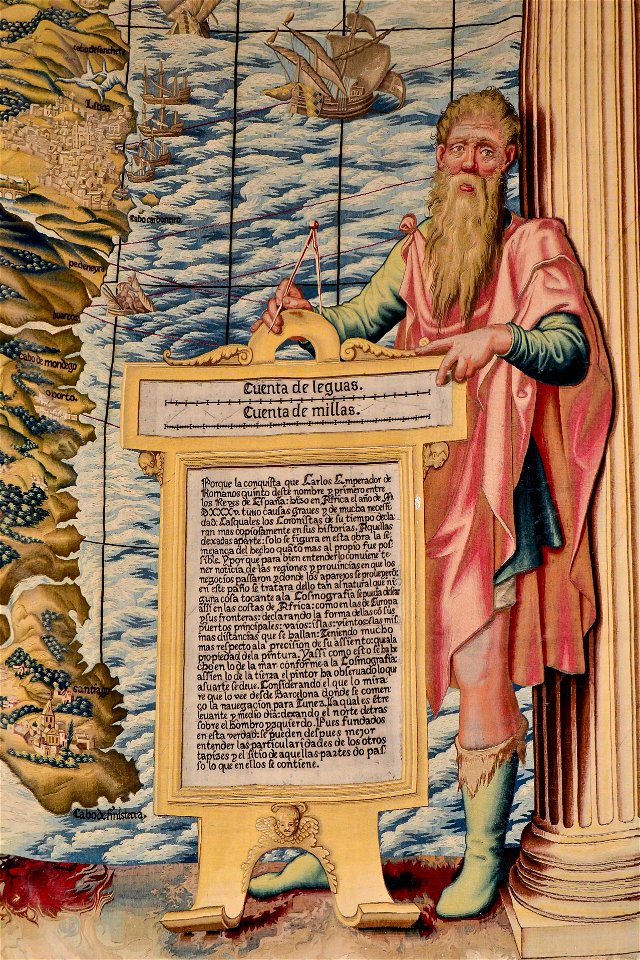 cabo de sanches
Lisboa
cabo carboneiro
pedeneyra
buarcos
cabo de mondego
oporto
Santiago
Cabo de finisterra
Cuenta de leguas.
Cuenta de millas.
Porque la conquista que Carlos Emperador de
Romanos quinto deste nombre y primero entre
los Reyes de España: hizo en Africa el año de M
DXXXV. tuvo causas graves y de mucha necesi
dad: Las quales los Coronistas de su tiempo decla
ran mas copiosamente en sus historias. Aquillas
dexadas aparte: solo se figura en esta obra la se
mejança del hecho quāto mas al propio fue pos
sible. Y por que para bien entender lo conviene te
ner noticia de las regiones y provincias en que los
negocios passaron y donde los aparejos se proveyerō:
en este paño se tratara dello tan al natural que ni
guna cosa tocante ala Cosmografia se pueda dessear
assi en las costas de Africa: como en las de Europa
y sus fronteras: declarando la forma dellas cō sus
puertos principales: vaios: islas: vientos: e las mis
mas distancias que se hallan: Teniendo mucho
mas respecto ala precision de su assiento: qua la
propiedad dela pintura. Y assi como esto se ha he
cho en lo de la mar conforme a la Cosmografia:
assi en lo de la tierra el pintor ha observado lo que
a su arte se deve. Considerando el que lo mira
re que lo vee desde Barcelona donde se comen
ço la navegacion para Tunez. La qual es ētre
levante y medio dia: dexando el norte detras
sobre el hombro yzquierdo. Pues fundados
en esta verdad: se pueden despues mejor
entender las particularidades de los otros
tapizes y el sitio de aquellas partes do pas
so lo que en ellos se contiene.